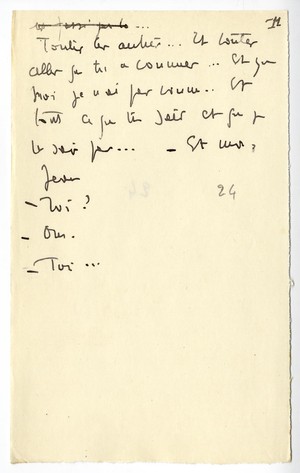 ...
Toutes les autres... Et toutes
celles que tu as connues... Et que
moi je n'ai pas connu... Et
tout ce que tu sais et que je
ne sais pas... – Et moi ?
Jean
– Toi ?
24
– Oui.
– Toi ...